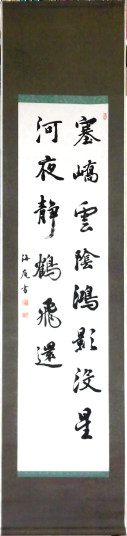 塞嶠雲陰鴻影没星
河夜静鶴飛還
海庭書